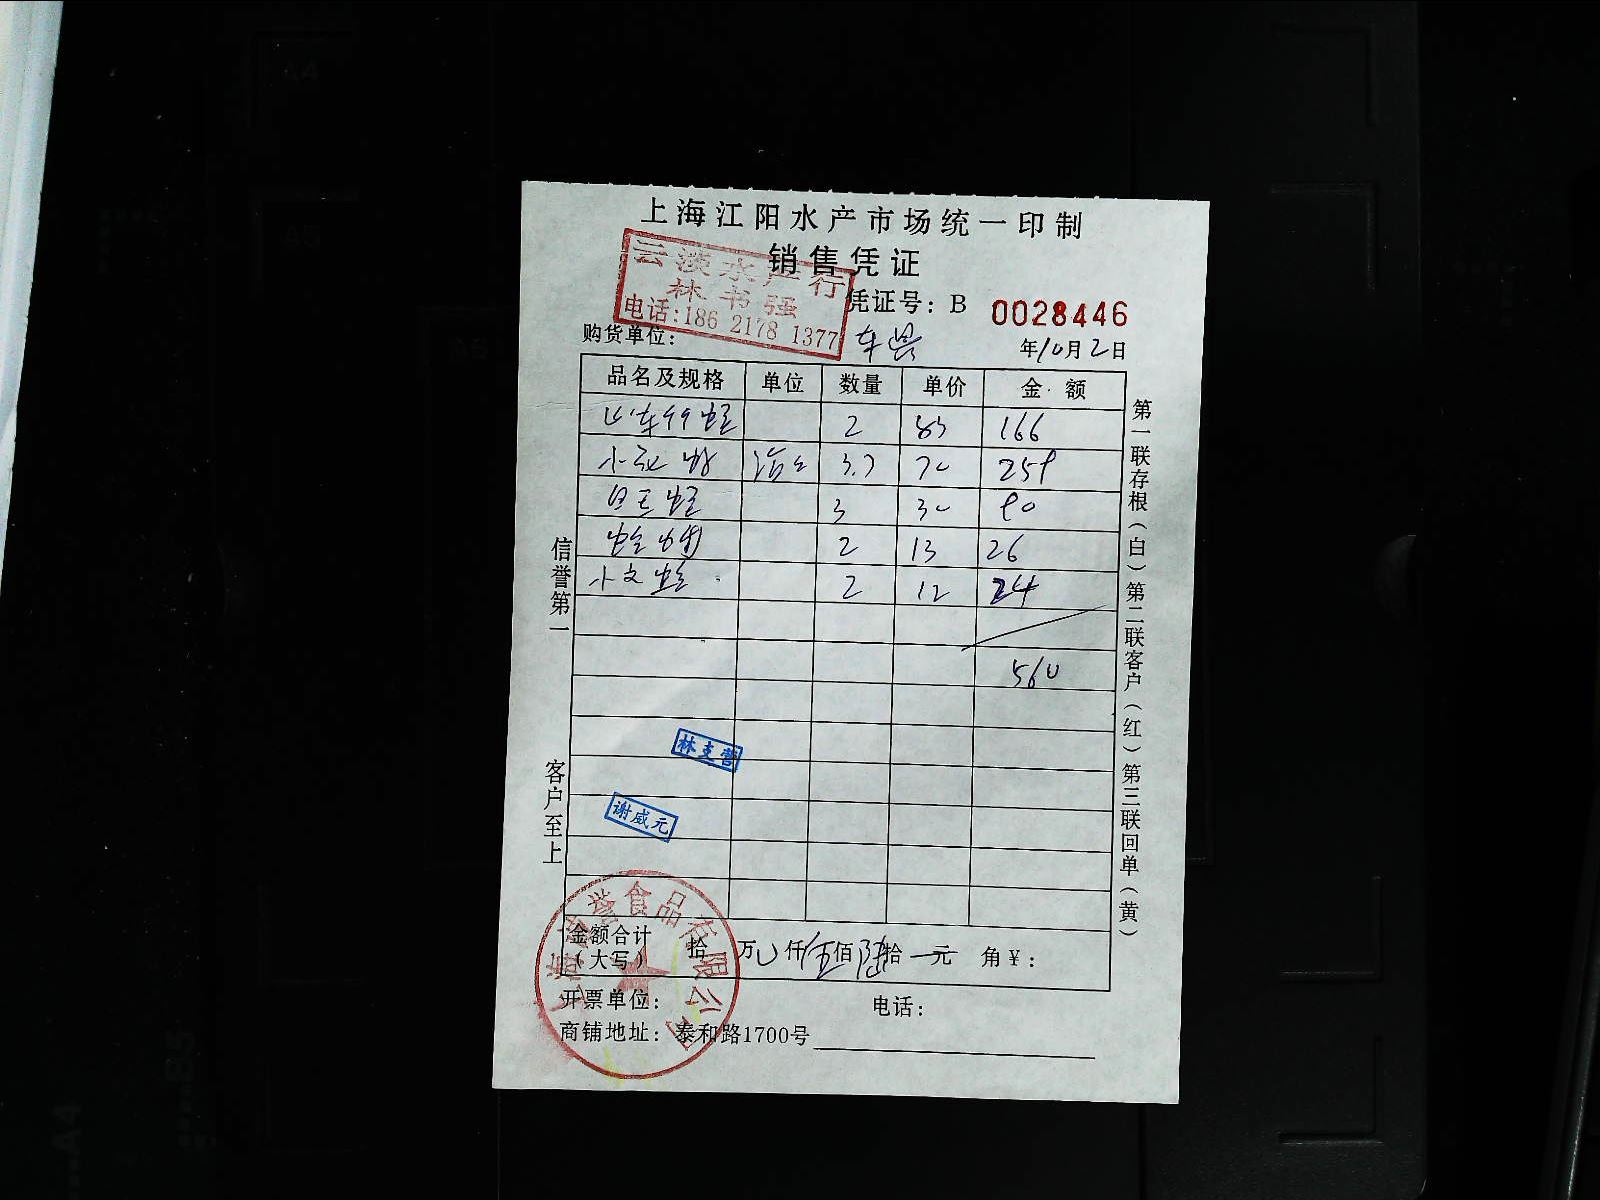 上海江阳水产市场统一印制
销售凭证
云淡水产行
林书强
电话:186 2178 1377
凭证号: B 0028446
购货单位:
年10月2日
品名及规格 单位 数量 单价 金额
2 83 166
3.7 70 259
白玉蛏 3 30 90
蛤蜊 2 13 26
小文蛤 2 12 24
560
信誉第一
客户至上
第一联存根(白)第二联客户(红)第三联回单(黄)
林支营
谢威元
誉食品有限公司
金额合计
(大写) 拾 万 仟伍佰陆拾 元 角¥:
开票单位: 电话:
商铺地址: 泰和路1700号